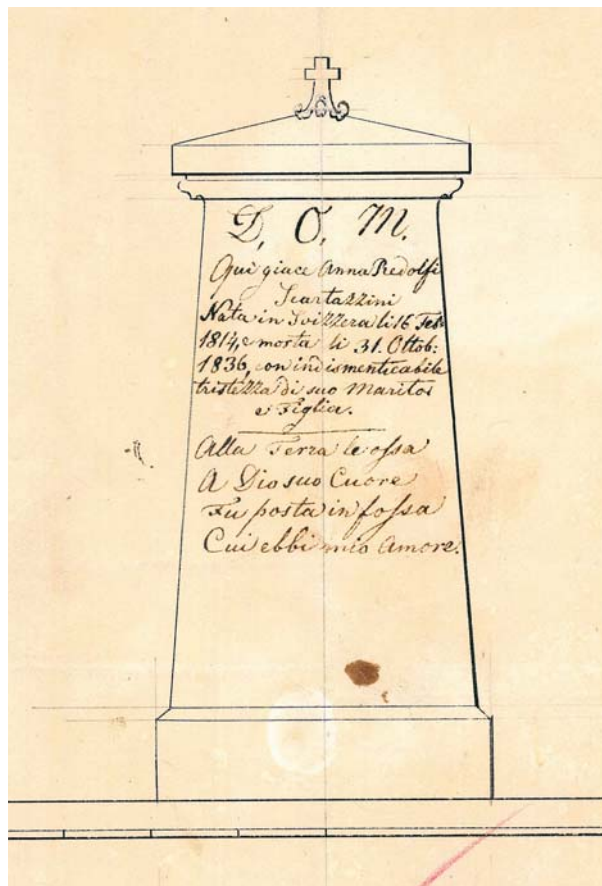 D. O. M.
Qui giace Anna Redolfi
Scartazzini
Nata in Svizzera li 16 Feb:
1814, e morta li 31. Ottob:
1836, con indismenticabile
tristezza di suo Marito
e Figlia.
Alla Terra le ossa
A Dio suo Cuore
Fu posta in fossa
Cui ebbi mio Amore.